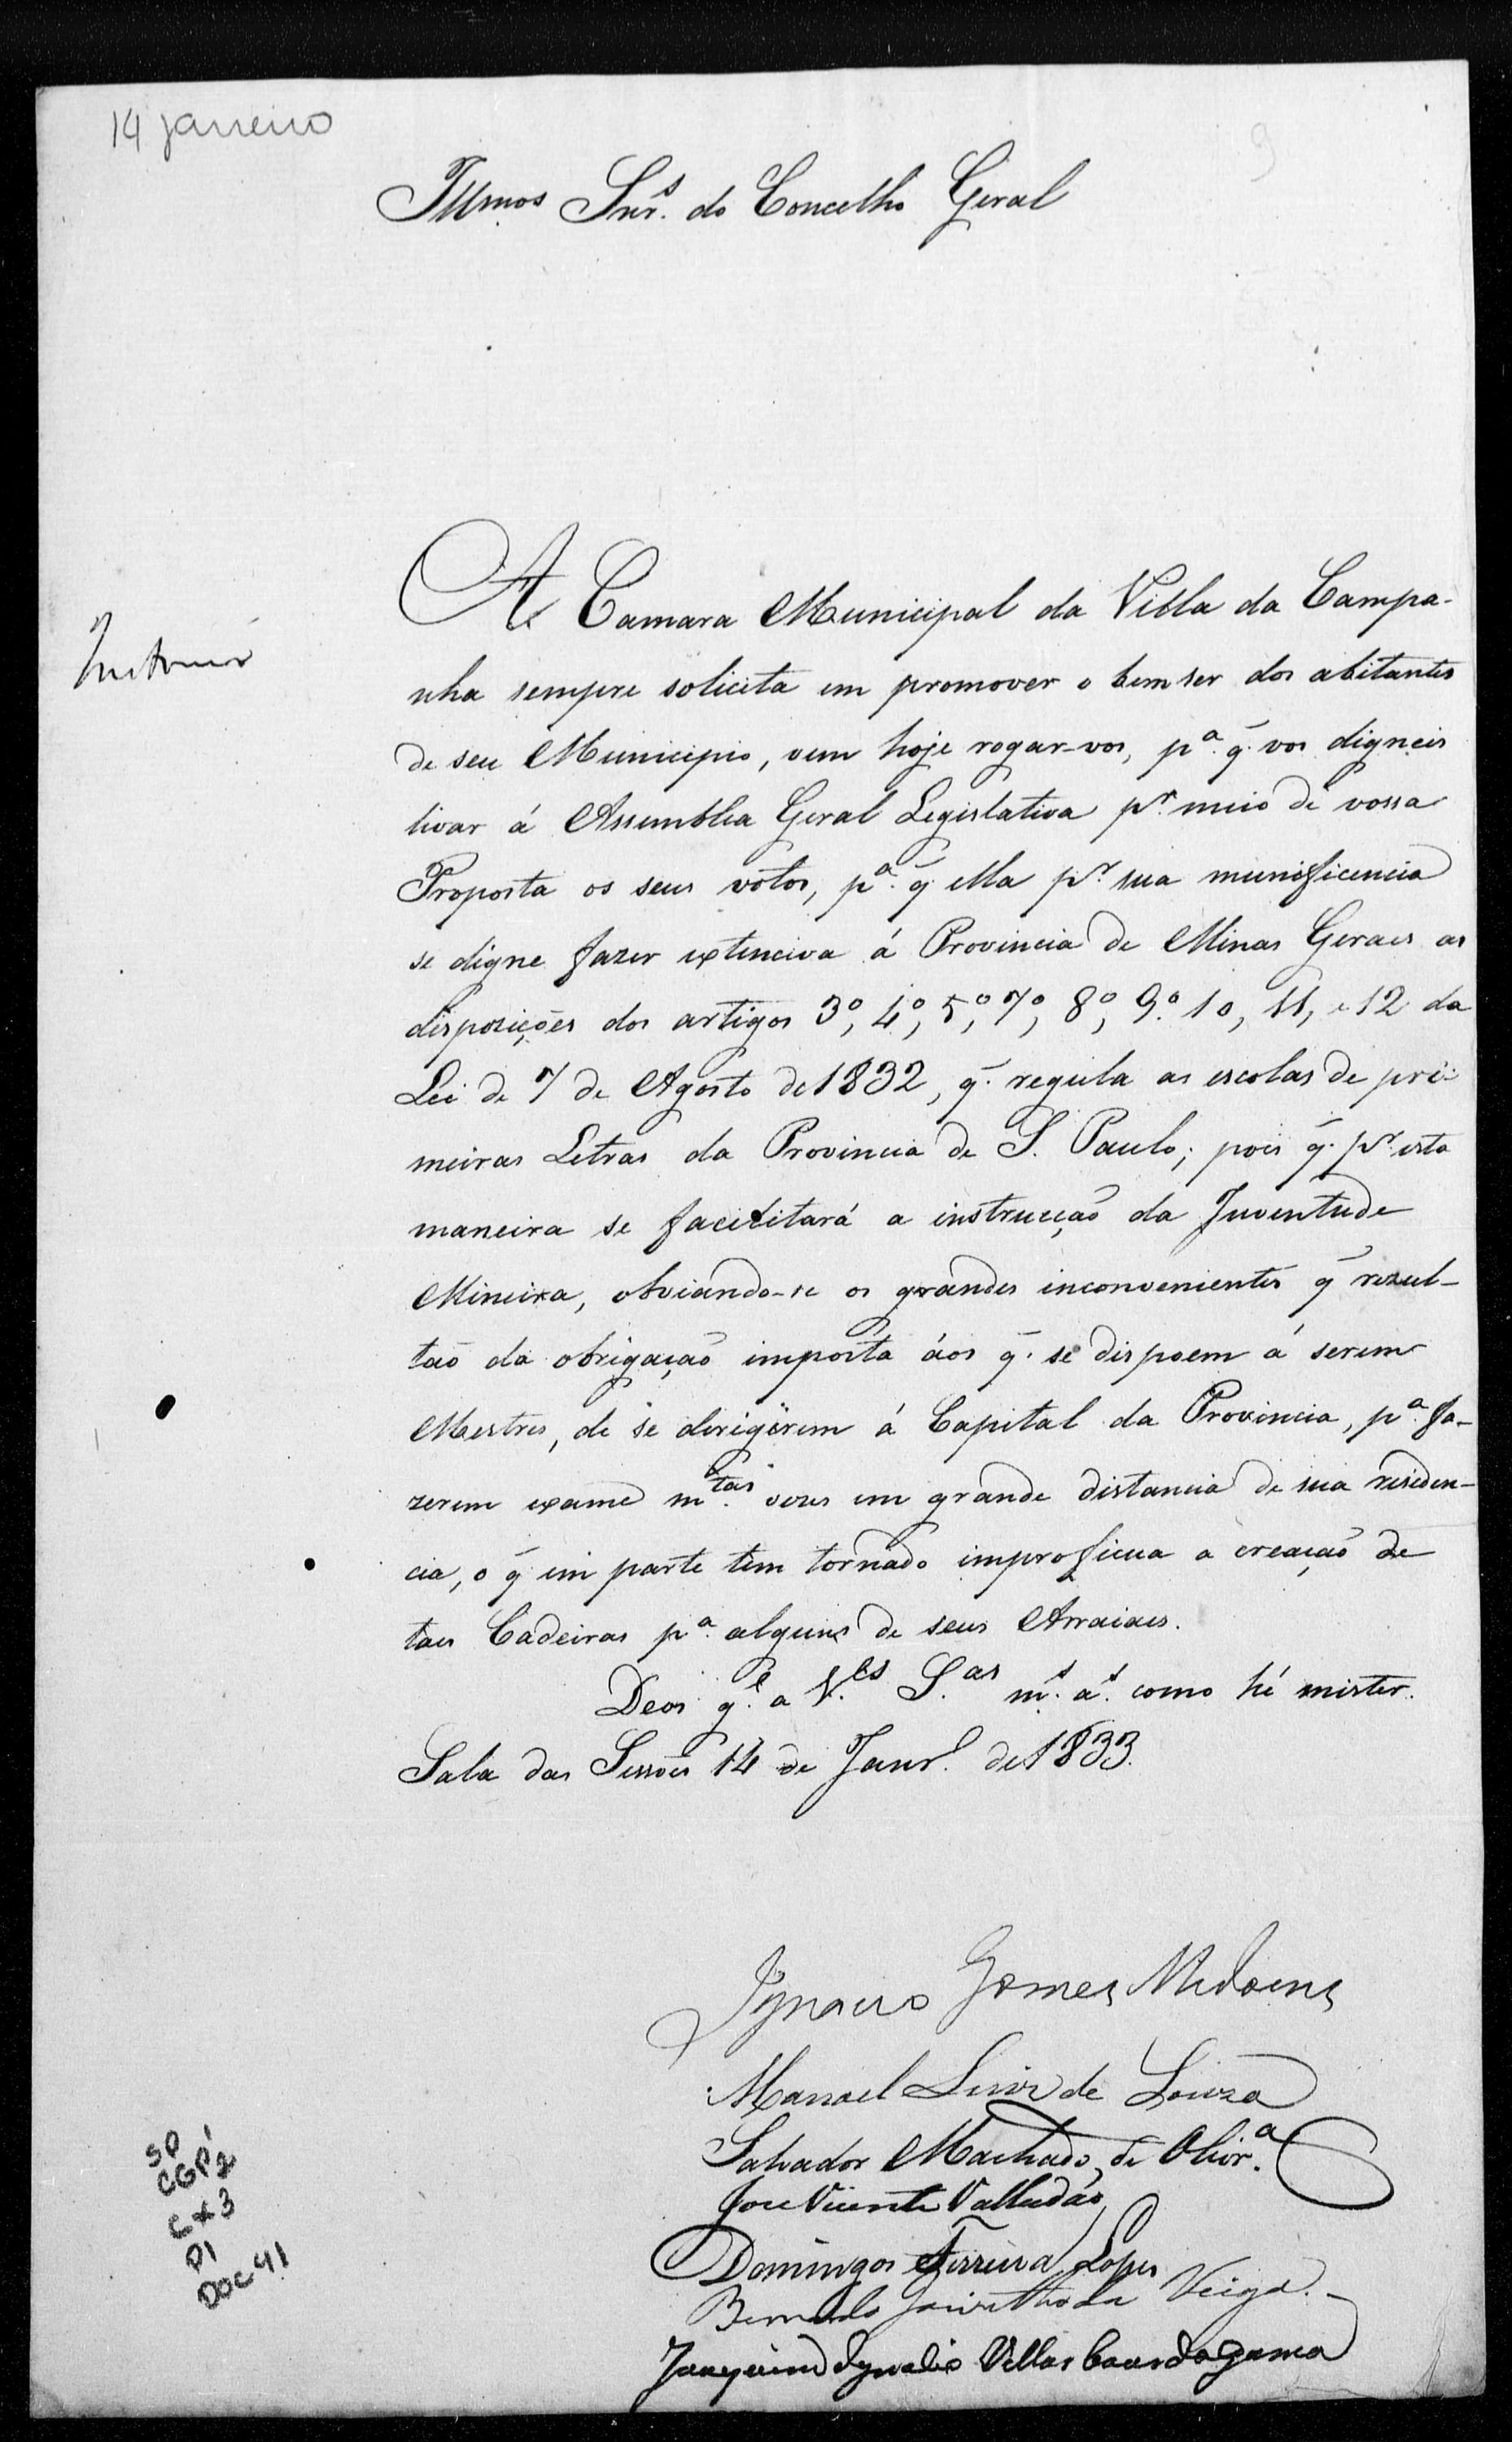 14 janeiro
9
Illmos Snr.s do Concelho Geral
A Camara Municipal da Villa da Campa-
nha sempre solicita em promover o bem ser dos abitantes
de seu Municipio, vem hoje rogar-vos, p.a q̃. vos digneis
livar á Assemblea Geral Legislativa p.r meio de vossa
Proposta os seus votos, p.a q̃ ella p.r sua munificencia
se digne fazer extenciva á Provincia de Minas Geraes as
disposições dos artigos 3º, 4º, 5º, 7º, 8º, 9º. 10, 11, e 12 da
Lei de 7 de Agosto de 1832, q̃. regula as escolas de pri-
meiras Letras da Provincia de S. Paulo; pois q̃. p.r esta
maneira se facilitará a instrucção da Juventude
Mineira, obviando-se os grandes inconvenientes q̃ rezul-
tão da obrigação imposta áos q̃. se dispoem á serem
Mestres, de se dirigirem á Capital da Provincia, p.a fa-
zerem exame m.tas vezes em grande distancia de sua residen-
cia, o q̃ em parte tem tornado improficua a creação de
taes Cadeiras p.a alguns de seus Arraiaes.
Deos g.e a V.es S.as m.s a.s como hé mister.
Sala das Sessões 14 de Janr.o de 1833.
Ignacio Gomes Midoens
Manoel Luiz de Souza
Salvador Machado de Olivr.a
Jose Vicente Valladão
Domingos Ferreira Lopes
Bernardo Jacintho da Veiga.
Joaquim Ignacio Villas boas da Gama
SP
CGP¹2
CX3
P1
DOC 41